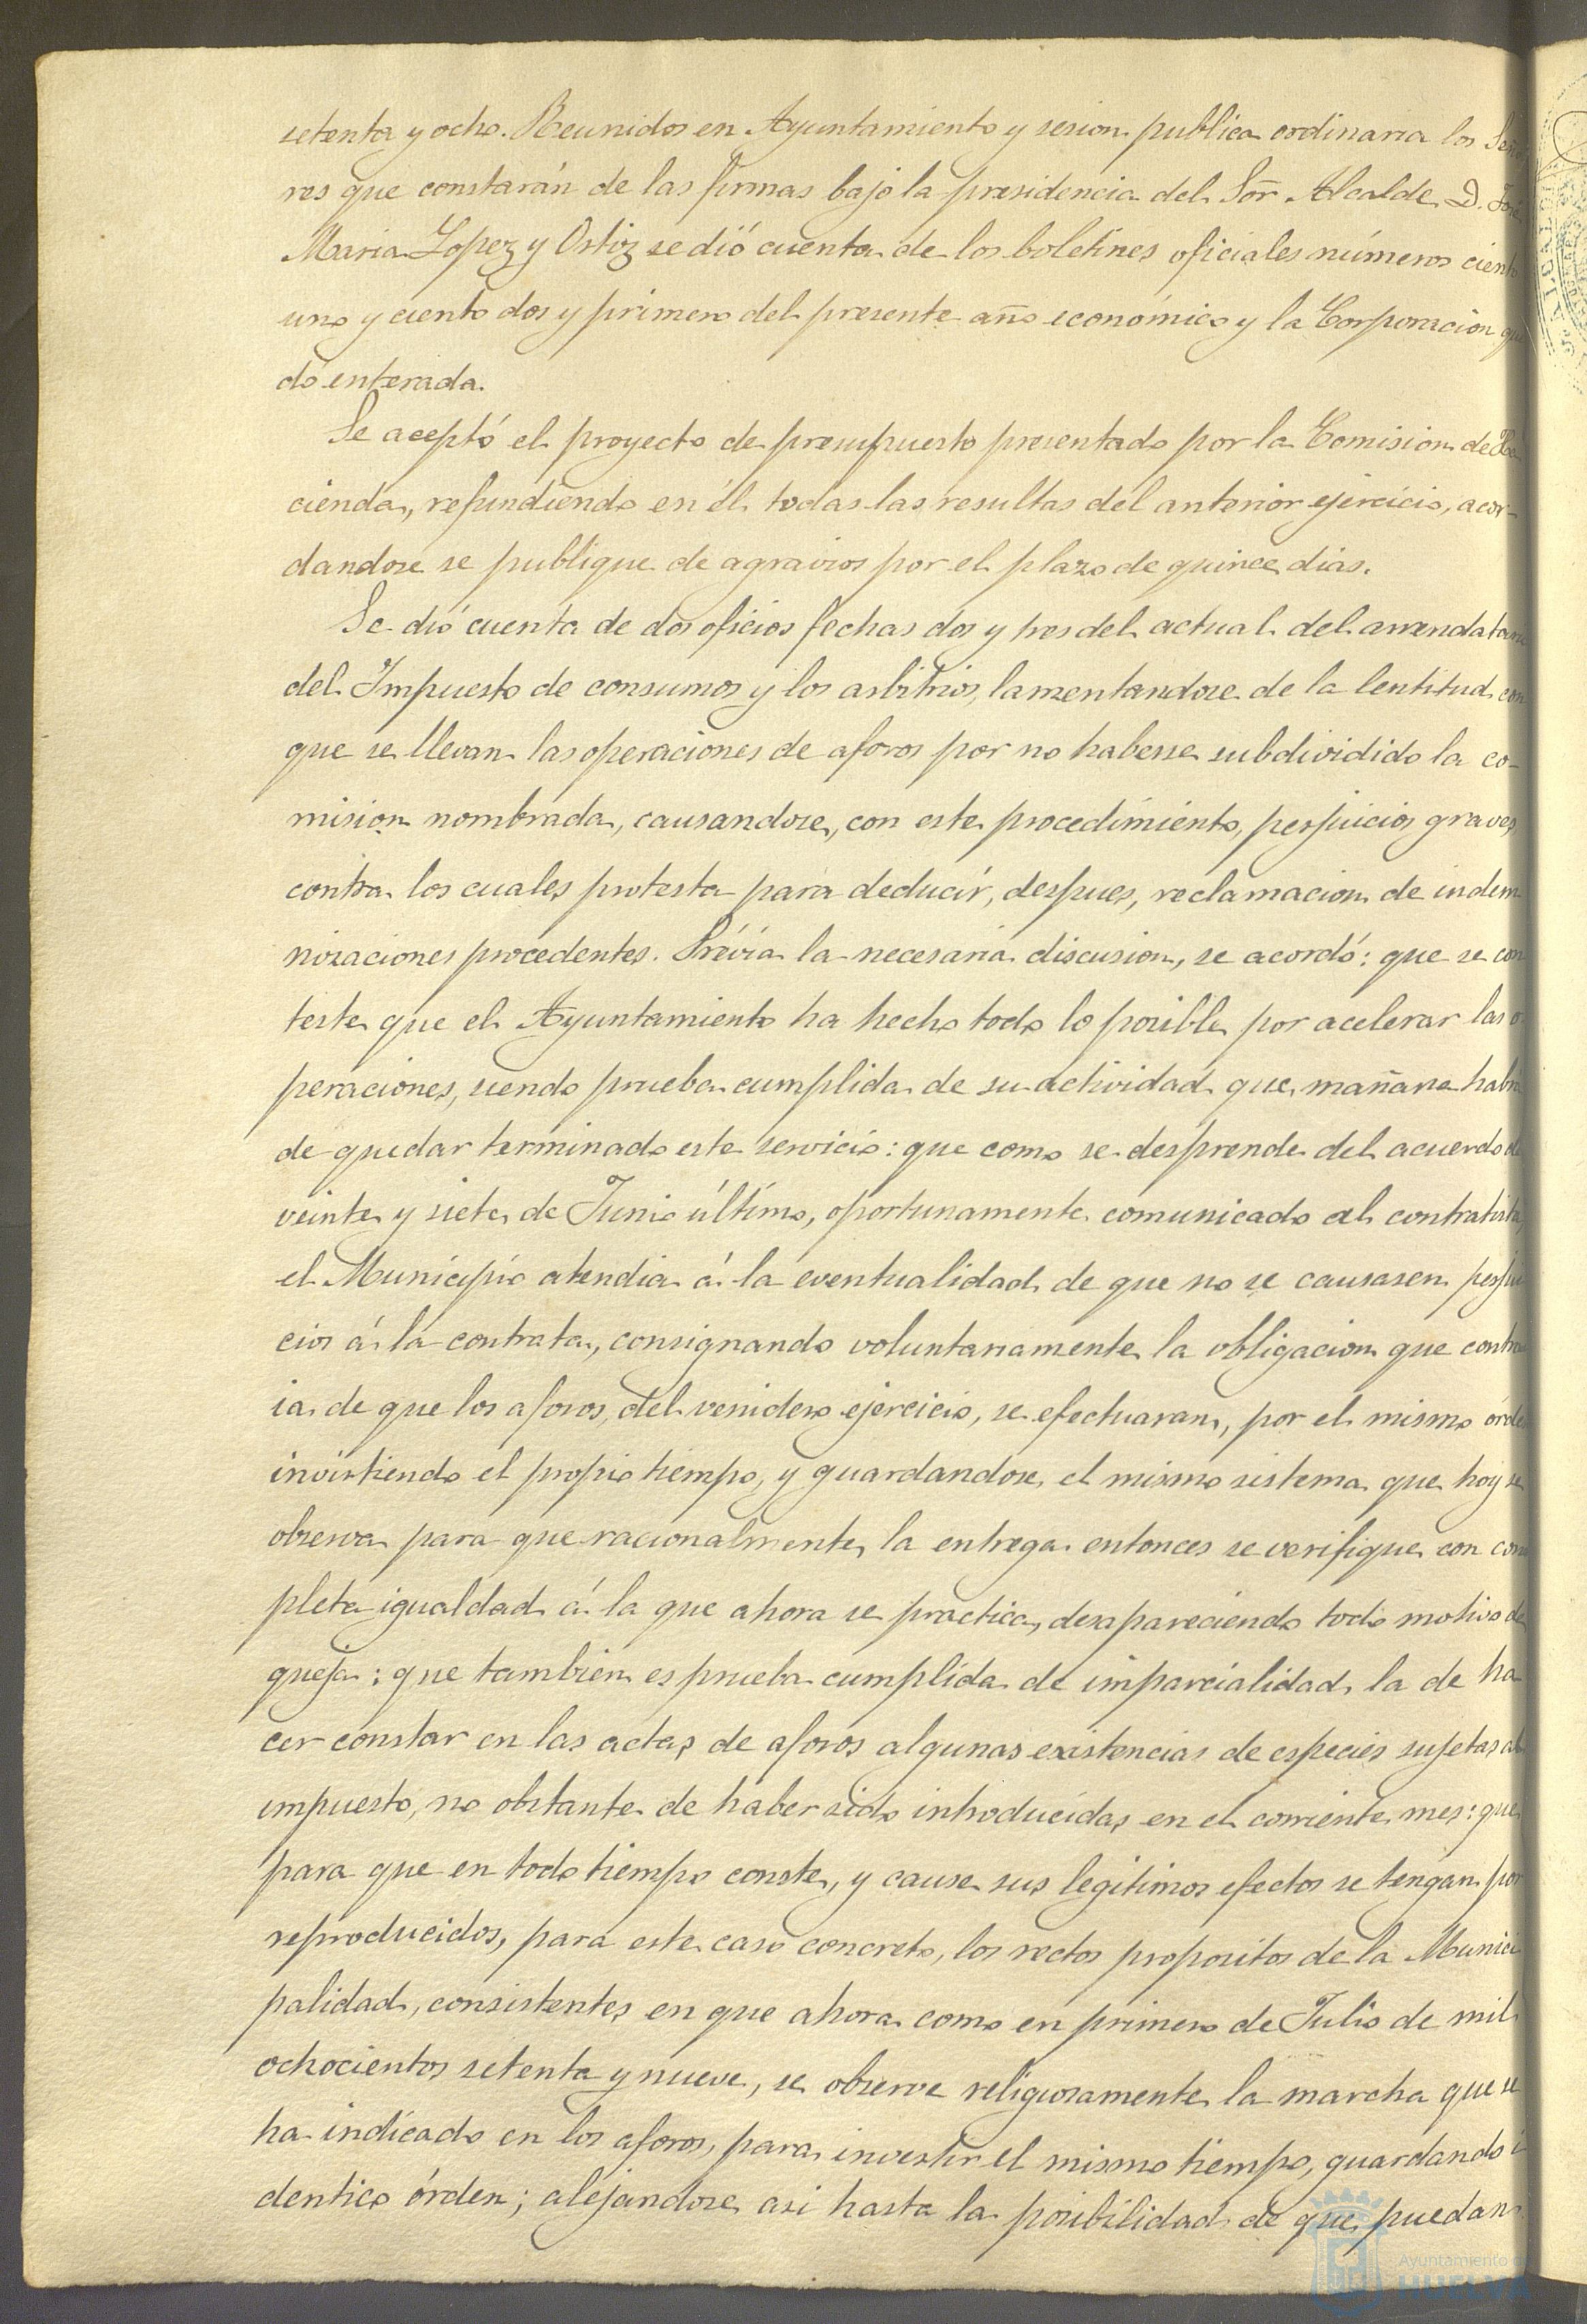 setenta y ocho. Reunidos en Ayuntamiento y sesion publica ordinaria los Seño
res que constarán de las firmas bajo la presidencia del Sor. Alcalde D. José
Maria Lopez y Ortiz se dió cuenta de los boletines oficiales números ciento
uno y ciento dos y primero del presente año económico y la Corporacion que
dó enterada.
Se aceptó el proyecto de presupuesto presentado por la Comision de Ha
cienda, refundiendo en él todas las resultas del anterior ejercicio, acor-
dandose se publique de agravios por el plazo de quince dias.
Se dió cuenta de dos oficios fechas dos y tres del actual del arrendatario
del Impuesto de consumos y los arbitrios, lamentandose de la lentitud con
que se llevan las operaciones de aforos por no haberse subdividido la co-
mision nombrada, causandose, con este procedimiento, perjuicios graves,
contra los cuales protesta para deducir, despues, reclamacion de indem
nizaciones procedentes. Prévia la necesaria discusion, se acordó: que se con
teste que el Ayuntamiento ha hecho todo lo posible por acelerar las o
peraciones, siendo prueba cumplida de su actividad que mañana habrá
de quedar terminado este servicio: que como se desprende del acuerdo de
veinte y siete de Junio último, oportunamente comunicado al contratista,
el Municipio atendia á la eventualidad de que no se causasen perjui
cios á la contrata, consignando voluntariamente la obligacion que contra
ia de que los aforos, del venidero ejercicio, se efectuaran, por el mismo órden
invirtiendo el propio tiempo, y guardandose el mismo sistema que hoy se
observa para que racionalmente, la entrega entonces se verifique con com
pleta igualdad á la que ahora se practica, desapareciendo todo motivo de
queja: que tambien es prueba cumplida de imparcialidad la de ha
cer constar en las actas de aforos algunas existencias de especies sujetas al
impuesto, no obstante de haber sido introducidas en el corriente mes: que
para que en todo tiempo conste, y cause sus legitimos efectos se tengan por
reproducidos, para este caso concreto, los rectos propositos de la Munici
palidad, consistentes en que ahora como en primero de Julio de mil
ochocientos setenta y nueve, se observe religiosamente la marcha que se
ha indicado en los aforos, para invertir el mismo tiempo, guardando i
dentico órden; alejandose asi hasta la posibilidad de que puedan
Ayuntamiento de
HUELVA